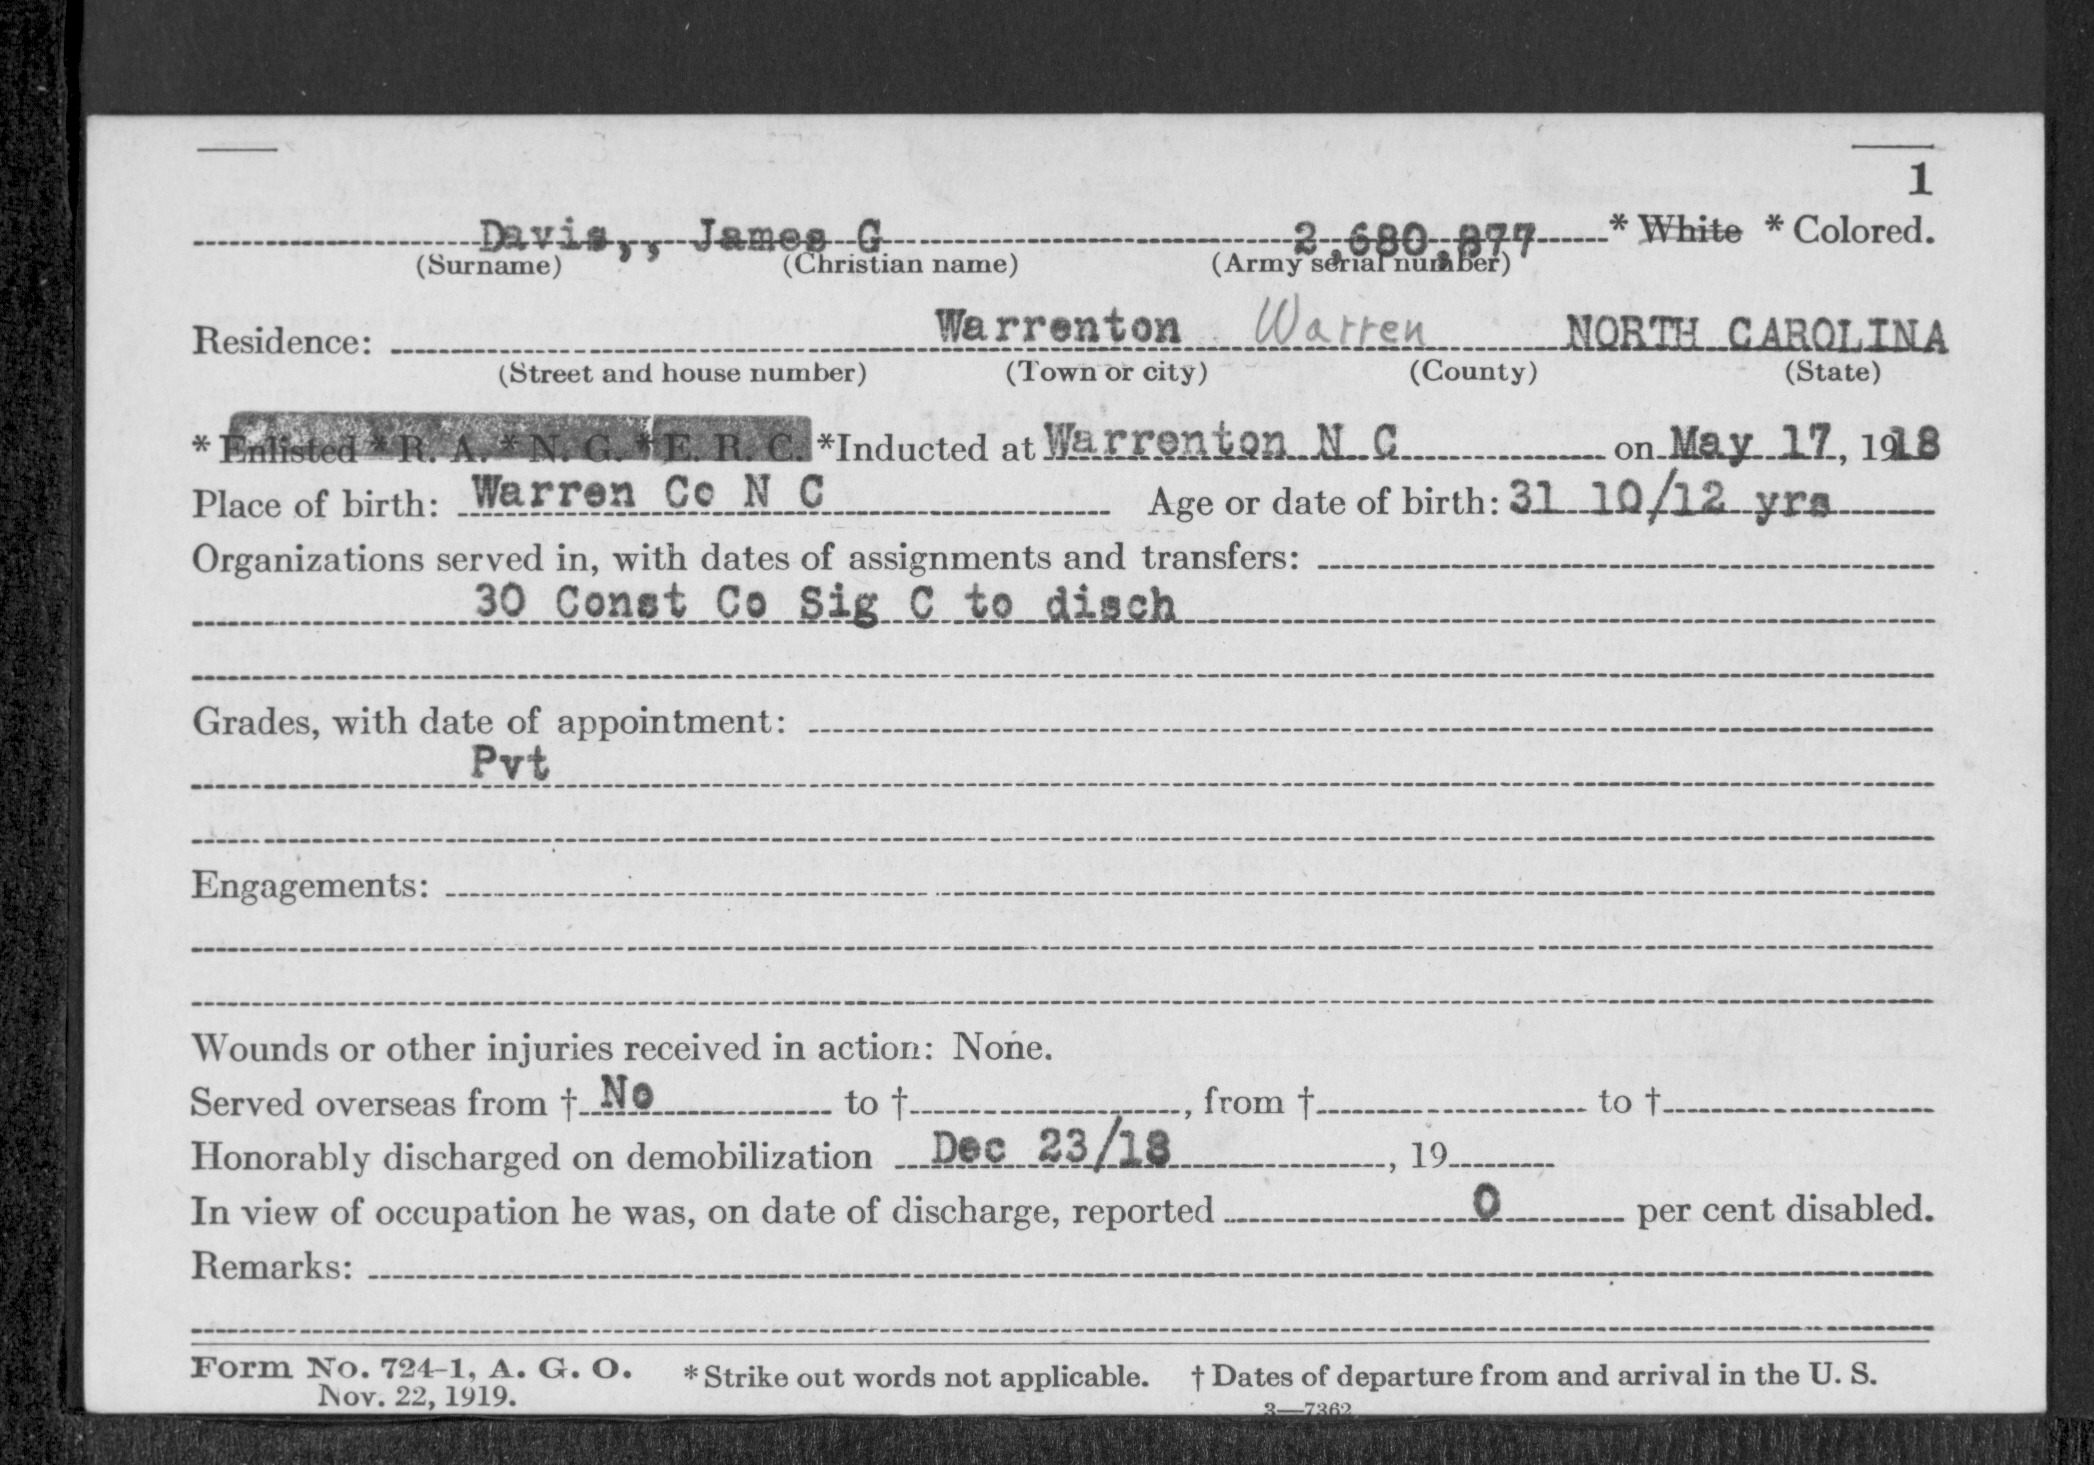 1
Davis,, James G 2,680,877 * White * Colored.
(Surname) (Christian name) (Army serial number)
Residence: Warrenton Warren NORTH CAROLINA
(Street and house number) (Town or city) (County) (State)
* Enlisted * R. A. * N. G. * E. R. C. *Inducted at Warrenton N C on May 17, 1918
Place of birth: Warren Co N C Age or date of birth: 31 10/12 yrs
Organizations served in, with dates of assignments and transfers:
30 Const Co Sig C to disch
Grades, with date of appointment:
Pvt
Engagements:
Wounds or other injuries received in action: None.
Served overseas from † No to †, from † to †
Honorably discharged on demobilization Dec 23/18, 19
In view of occupation he was, on date of discharge, reported 0 per cent disabled.
Remarks:
Form No. 724-1, A. G. O. * Strike out words not applicable. † Dates of departure from and arrival in the U. S.
Nov. 22, 1919.
3—7362